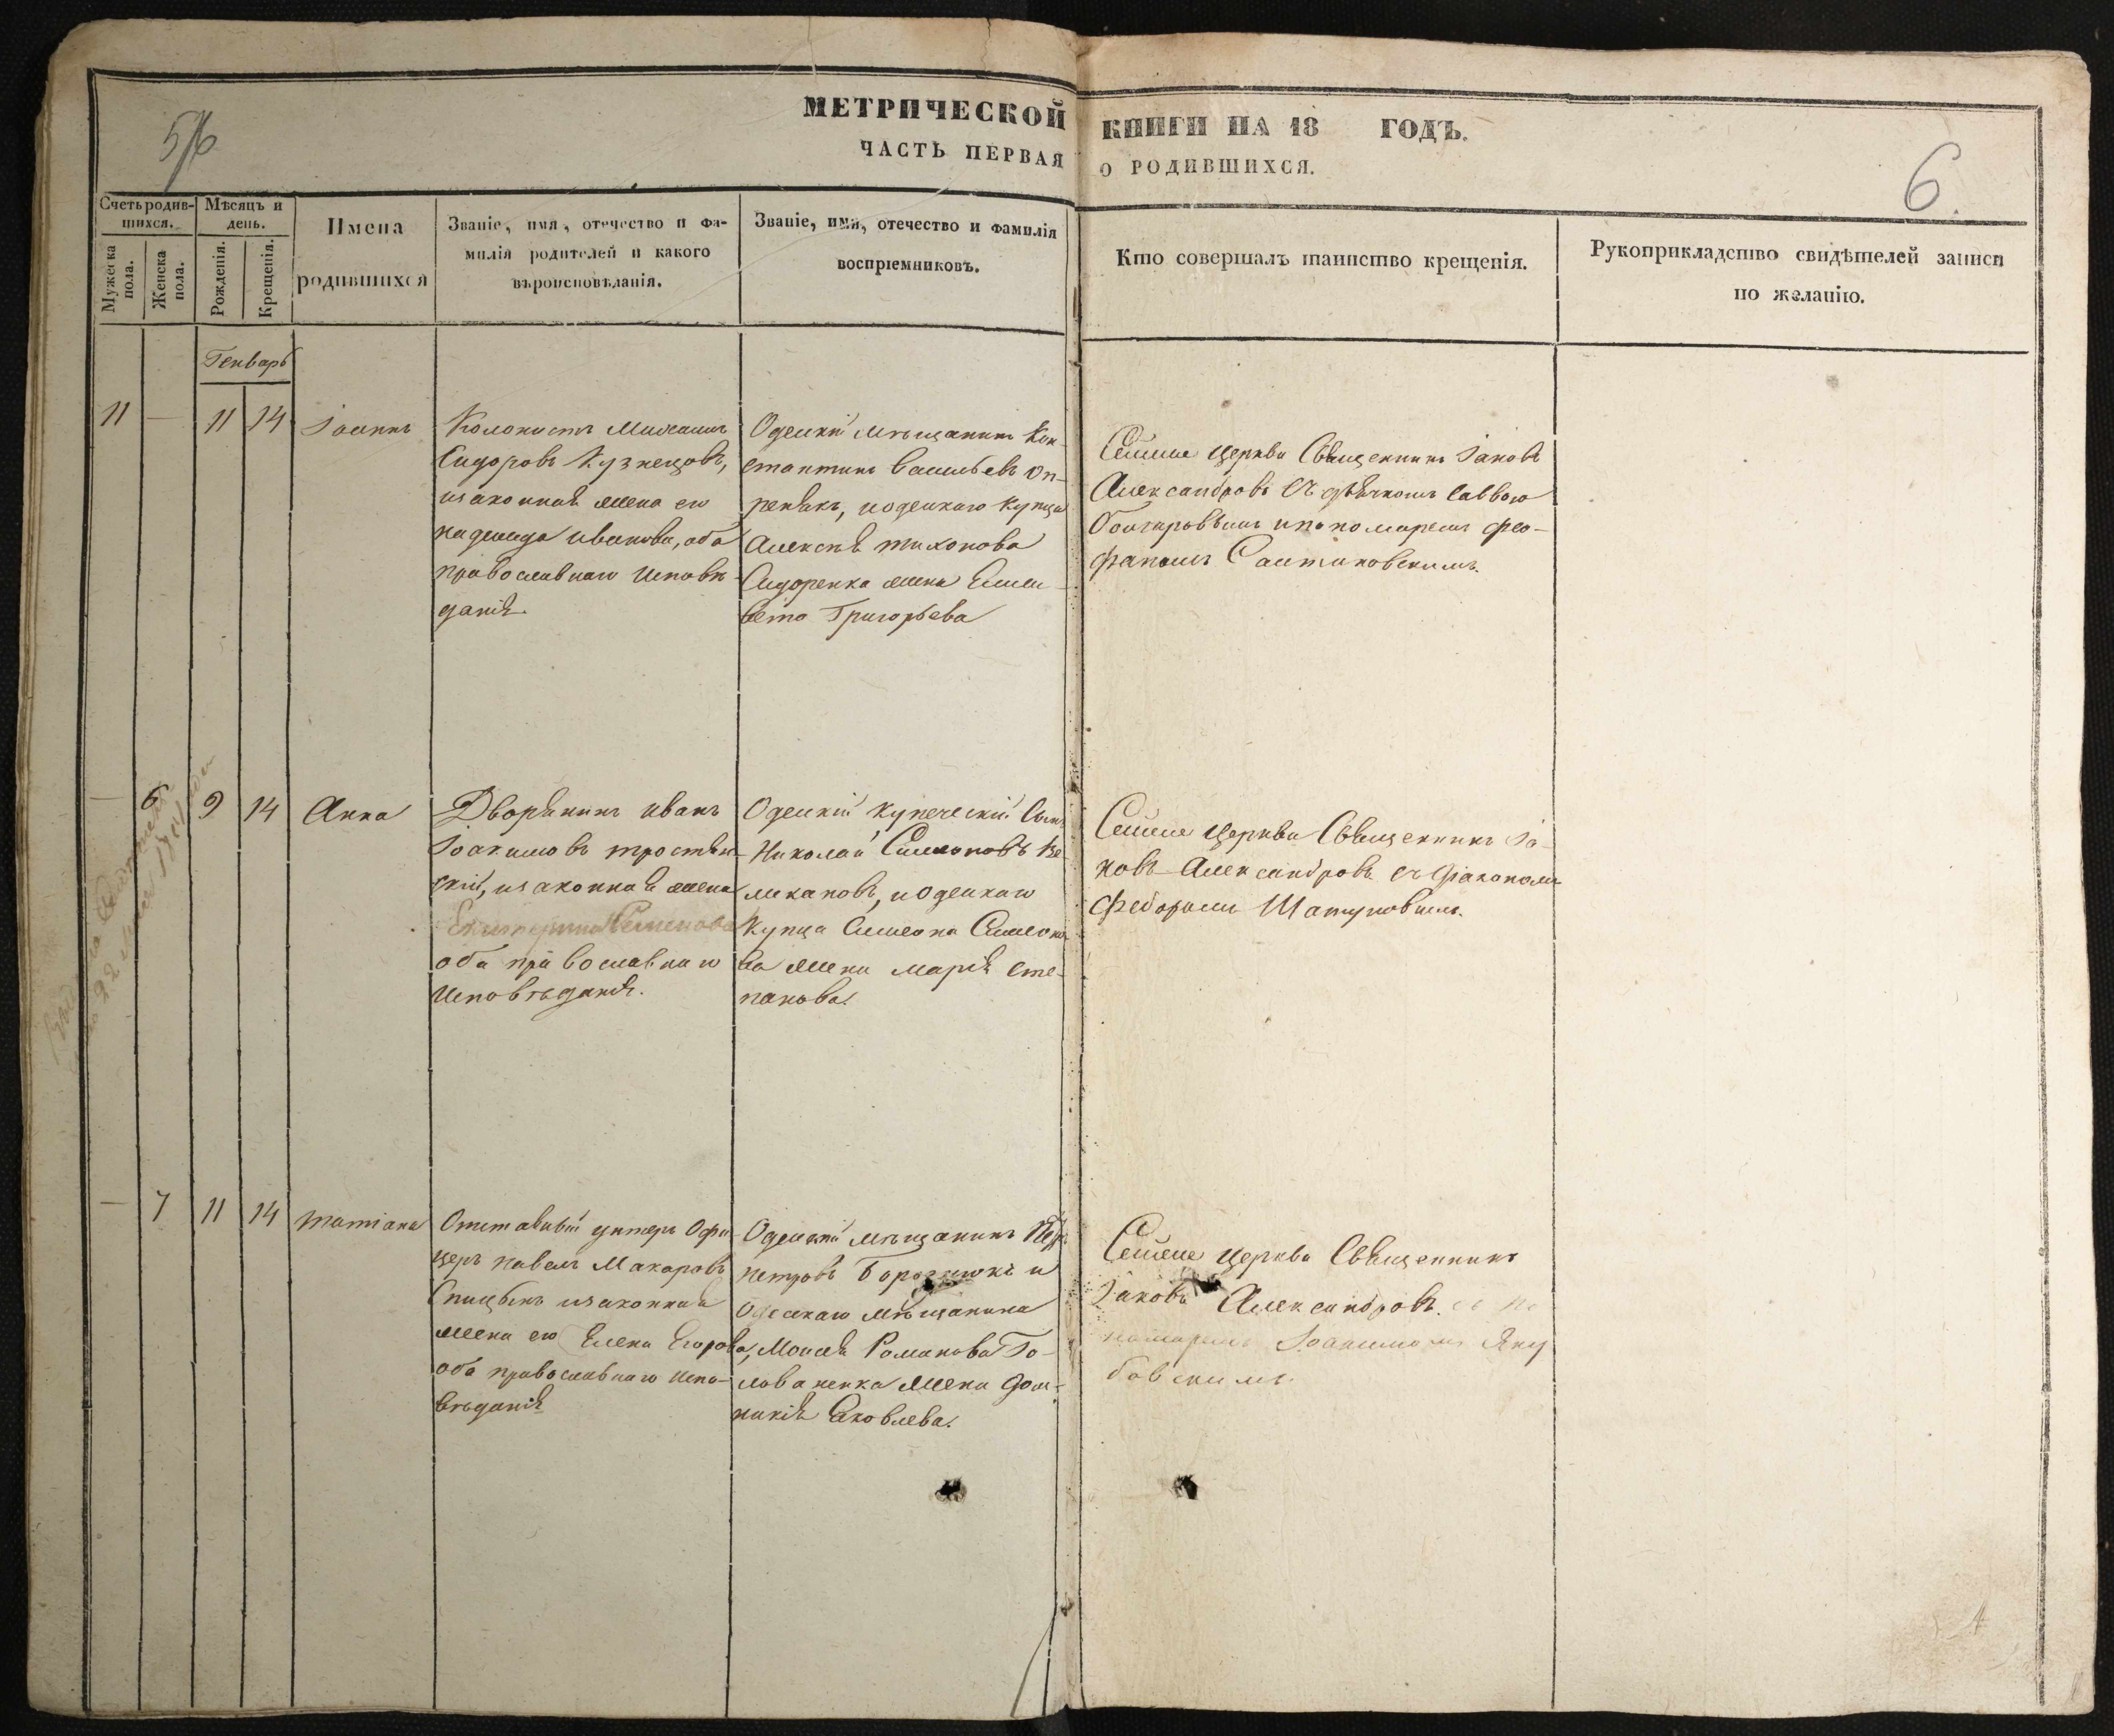 МЕТРИЧЕСКОЙ КНИГИ НА 18 ГОДЪ.
ЧАСТЬ ПЕРВАЯ О РОДИВШИХСЯ.
5/6
6.
Счетъ родив-
шихся.
Мужеска
пола.
Женска
пола.
Мѣсяцъ и
день.
Рожденія.
Крещенія.
Имена
родившихся
Званіе, имя, отечество и фа-
милія родителей и какого
вѣроисповѣданія.
Званіе, имя, отечество и фамилія
воспріемниковъ.
Кто совершалъ таинство крещенія.
Рукоприкладство свидѣтелей записи
по желанію.
Генварь
11 — 11 14
Іоаннъ
Колонистъ Михаилъ
Сидоровъ Кузнецовъ,
изаконная жена его
надежда иванова, оба
православнаго Исповѣ-
данія.
Одескій мѣщанинъ Кон-
стантинъ Васильевъ
иодескаго купца
Алексѣя тихонова
Сидоренка жена Елиса-
вета Григорьева
Сейже церкви Священникъ Іаковъ
Александровъ съ дьячкомъ Саввою
ипономаремъ Фео-
фаномъ
— 6 9 14
Анна
Дворянинъ иванъ
Іоакимовъ тростян-
скій, изаконная жена
Екатерина Семенова
оба православнаго
Исповѣданія.
Одескій купеческій Сынъ
Николай Симеоновъ Ве-
ликановъ, иодескаго
купца Симеона Симеоно-
ва жена марія сте-
панова.
Сейже церкви Священникъ Іа-
ковъ Александровъ съ діакономъ
Феодоромъ Шатуновымъ.
— 7 11 14
татіана
Отставный унтеръ Офи-
церъ павелъ Макаровъ
Спицынъ изаконная
жена его Елена Егорова,
оба православнаго испо-
вѣданія
Одескій мѣщанинъ
петровъ и
Одескаго мѣщанина
Моисея Романова Го-
лованенка жена дом-
никія Яковлева.
Сейже церкви Священникъ
Іаковъ Александровъ. съ по-
номаремъ Іоакимомъ Яку-
бовскимъ.